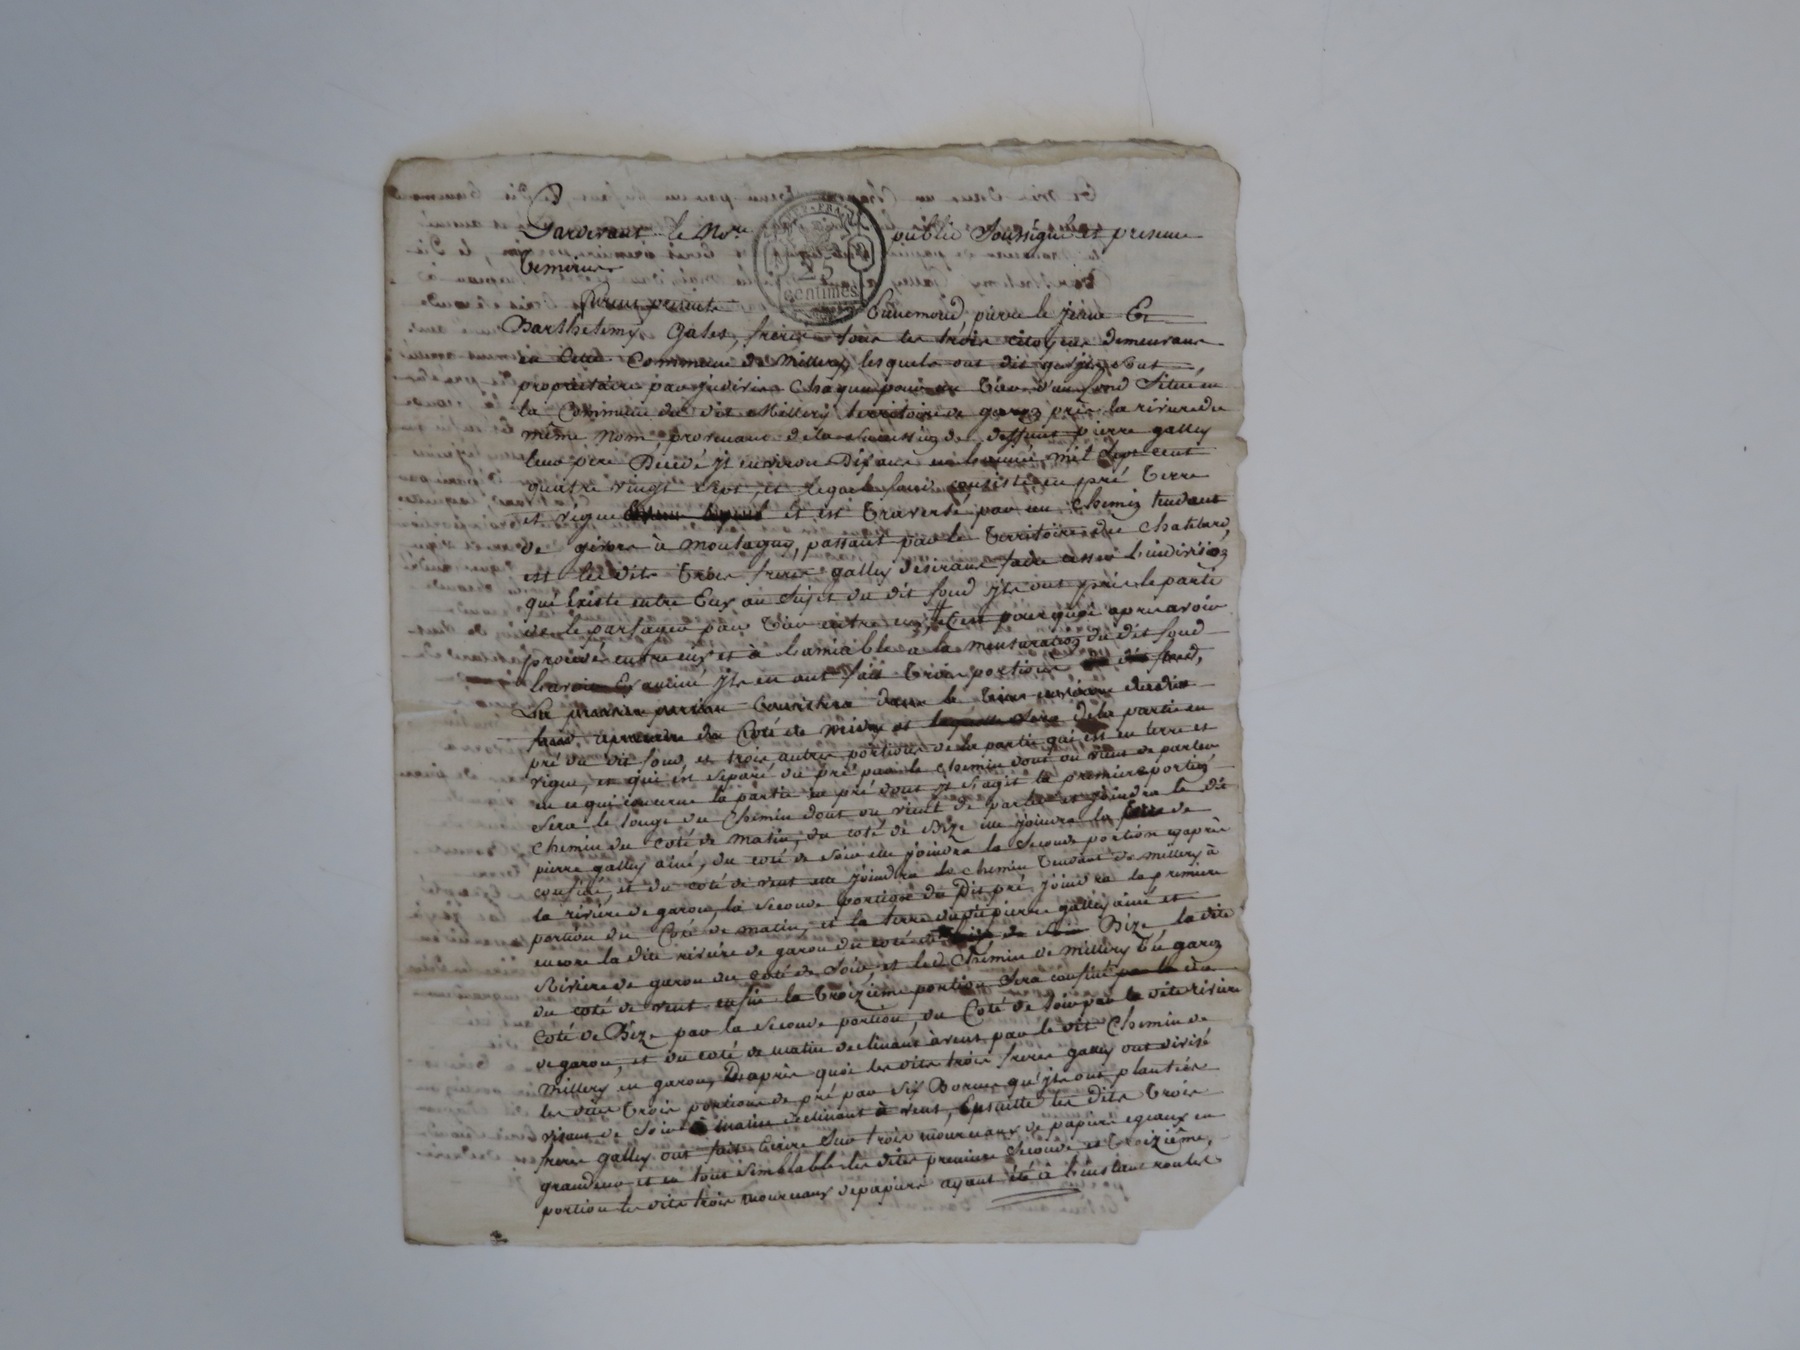 Pardevant le No.re public soussigné et presence
temoins
Furent presents Ennemond, pierre le jeune Et
Barthelemy Gales, freres tous les trois citoyens demeurans
en cette Commune de Millery, lesquels ont dit qu'ils sont
propriétaires par indivis Chaqun pour un tiers d'un fond situé en
la Commune du dit Millery territoire de garon près la riviere du
même nom, provenant de la succession de deffunt pierre galley
leur pere Decedé il environ Dix ans en l'année mil sept cent
quatre vingt sept, et lequel fond consiste en pré terre
et vigne et est traversé par un chemin tendant
de givors à montagny, passant par le territoire du chatelard,
est les dits trois freres galley desirant faire cesser l'indivision
qui Existe entre Eux au sujet du dit fond ils ont pris le parti
de le partager par tiers entre eux C'est pourquoi apres avoir
procedé entre eux et à l'amiable a la mensuration du dit fond
ils en ont fait trois portions
La premiere portion Consistera dans le tiers environ du dit
fond à prendre du Coté de midy et de la partie en
pré du dit fond, et trois autres portions de la partie qui est en terre et
vigne, et qui est separé du pré par le chemin dont on vient de parler
en ce qui concerne la partie en pré dont il s'agit la premiere portion
sera le longe du chemin dont on vient de parler et joindra le dit
chemin du coté de matin, du coté de Bize elle joindra la terre de
pierre galley ainé, du coté de soir elle joindra la seconde portion cy après
confiné, et du coté de vent elle joindra le chemin tendant de millery à
la riviere de garon, la seconde portion du Dit pré joindra la premiere
portion du Coté de matin, et la terre du dit pierre galley ainé et
encore la dite riviere de garon du coté de Bize, la dite
Riviere de garon du coté de soir, et le d. Chemin de millery En garon
du coté de vent enfin la troizieme portion sera confiné
Coté de Bize par la seconde portion, du Coté de soir par la dite riviere
de garon, et du coté de matin declinant à vent par le dit Chemin de
millery en garon, D'après quoi les dits trois freres galley ont divisé
les dites trois portions de pré par six Bornes qu'ils ont plantées
visant de soir à matin declinant à vent, Ensuitte les dits trois
freres galley ont fait Ecrire sur trois mourceaux de papiers egeaux en
grandeur et en tout semblable les dites premiere seconde et troizième,
portion les dits trois mourceaux de papiers ayant été à l'instant roulés
FRANÇ
25
centimes